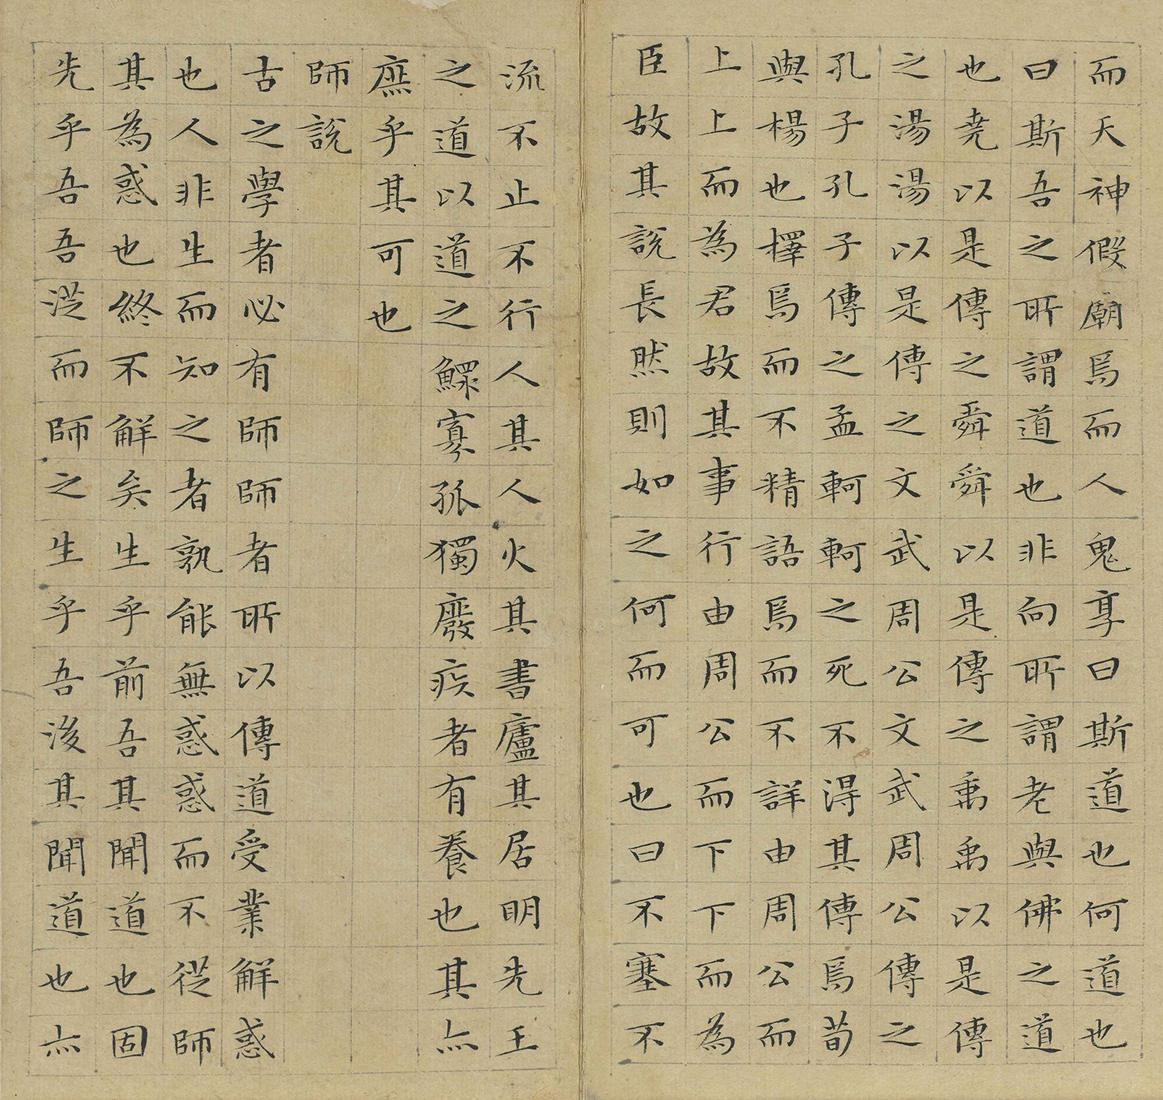 而天神假廟焉而人鬼享曰斯道也何道也
曰斯吾之所謂道也非向所謂老與佛之道
也堯以是傳之舜舜以是傳之禹禹以是傳
之湯湯以是傳之文武周公文武周公傳之
孔子孔子傳之孟軻軻之死不得其傳焉荀
與楊也擇焉而不精語焉而不詳由周公而
上上而為君故其事行由周公而下下而為
臣故其說長然則如之何而可也曰不塞不
流不止不行人其人火其書廬其居明先王
之道以道之鰥寡孤獨廢疾者有養也其亦
庶乎其可也
師說
古之學者必有師師者所以傳道受業解惑
也人非生而知之者孰能無惑惑而不從師
其為惑也終不解矣生乎前吾其聞道也固
先乎吾吾從而師之生乎吾後其聞道也亦